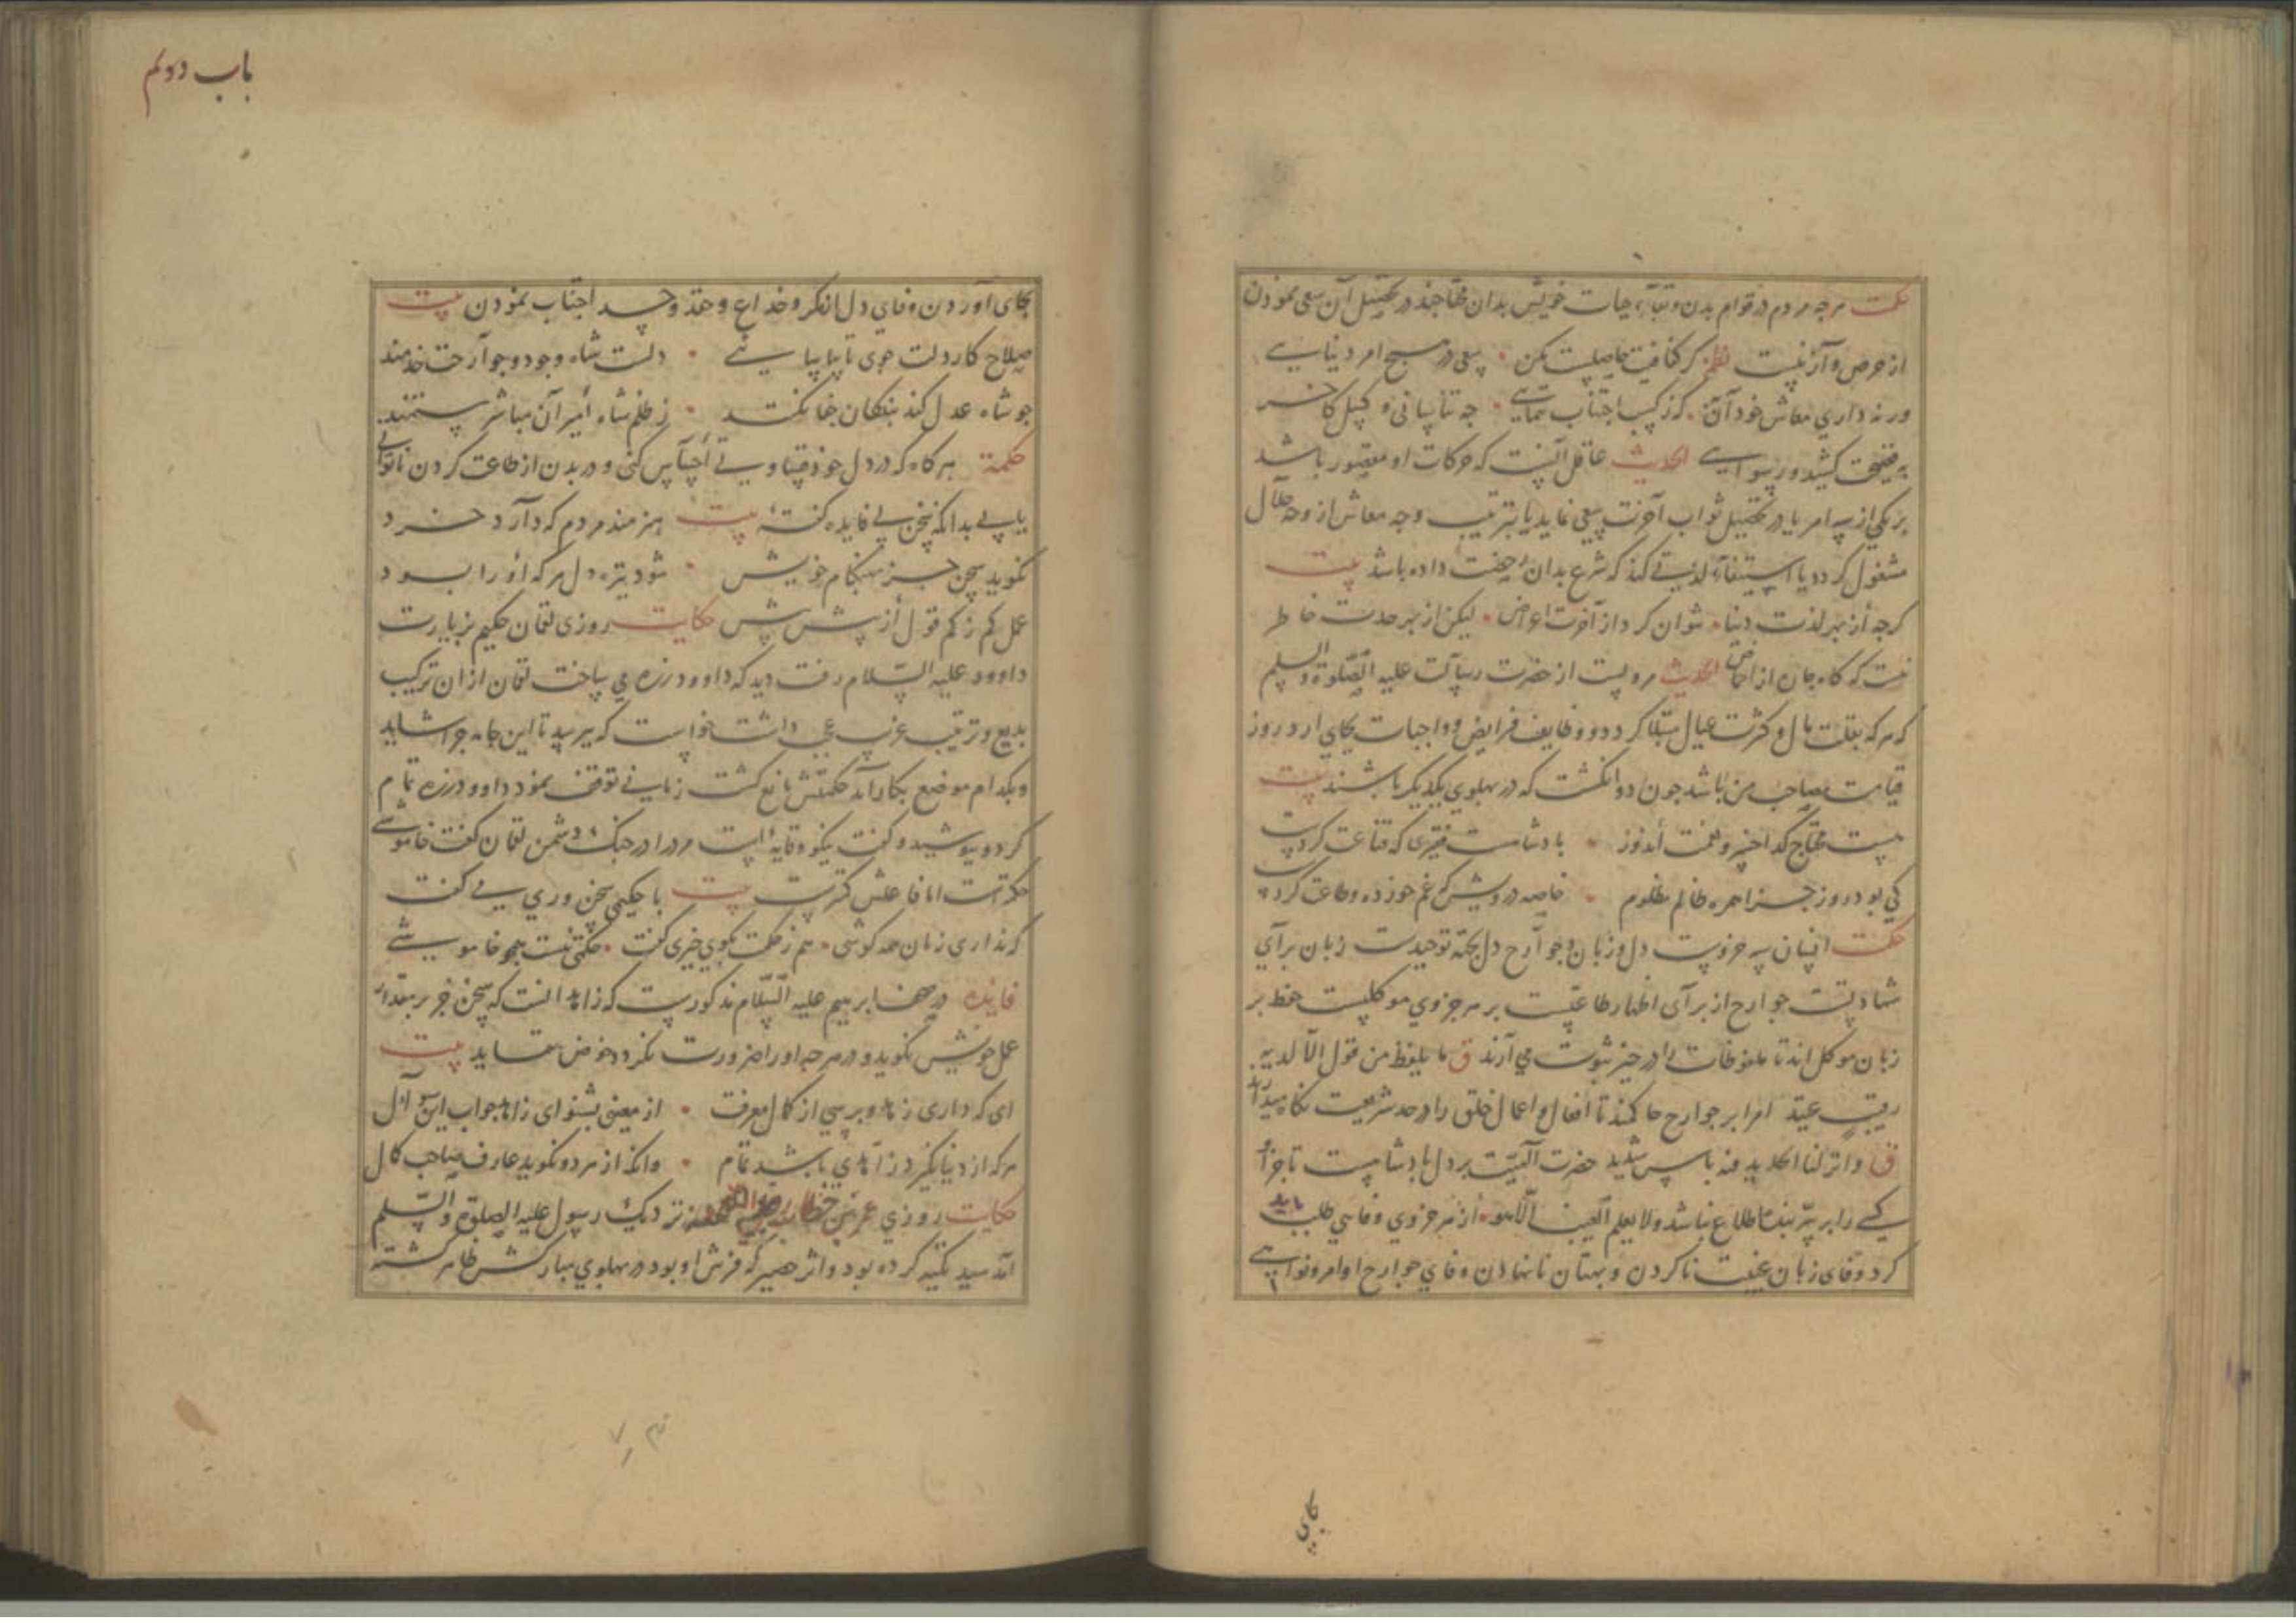 حکمت هرچه مردم در قوام بدن و بقاء حیات خویش بدان محتاجند در تحصیل آن سعی نمودن
از حرص و آز نیست نظم گر کفافیت حاصلست مکن • سعی در هیچ امر دنیایی
ور نداری معاش خود آن • که ز کسب اجتناب ننمایی • چه تن آسانی و کسل کاخر
به فضیحت کشید و رسوایی الحدیث عاقل آنست که حرکات او مقصور باشد
بر یکی از سه امر یا در تحصیل ثواب آخرت سعی نماید یا بترتیب وجه معاش از وجه حلال
مشغول گردد یا استیفاء لذتی کند که شرع بدان رخصت داده باشد بیت
کرچه از بهر لذت دنیا • نتوان کرد از آخرت اعراض • لیکن از بهر حدت خاطر
نیست که گاه چاره از احماض الحدیث مرویست از حضرت رسالت علیه الصلوة والسلم
که هر که بقلت مال و کثرت عیال مبتلا گردد و وظایف فرایض و واجبات بجای ارد روز
قیامت مصاحب من باشد چون دو انگشت که در پهلوی یکدیگر باشند بیت
هست محتاج گدا خسرو نعمت اندوز • پادشاست فقیری که قناعت کردست
کی بود روز جزا همره ظالم مظلوم • خاصه درویش که غم خورده و طاعت کردست
حکمت انسان سه جزوست دل و زبان و جوارح دل بجهة توحیدست زبان برآی
شهادتست جوارح از برآی اظهار طاعتست بر هر جزوی موکلیست حفظ بر
زبان موکل اند تا ملفوظات را در حیز ثبوت می آرند ق ما یلفظ من قول الا لدیه
رقیب عتید امرا بر جوارح حاکمند تا افعال و اعمال خلق را در حد شریعت نگاه میدارند
ق وانزلنا الحدید فیه باس شدید حضرت الهیت بر دل پادشاهست تا جز او
کسی را بر سر بنده اطلاع نباشد ولا یعلم الغیب الا هو • از هر جزوی وفایی طلب باید
کرد وفای زبان غیبت ناکردن و بهتان نانهادن وفای جوارح اوامر و نواهی
بجای
باب دوم
بجای آوردن وفای دل از مکر و خداع و حقد و حسد اجتناب نمودن بیت
صلاح کار دلت جوی تا بیاسایی • دلت شاه وجود و جوارحت خدمند
چو شاه عدل کند بندگان خفا نکنند • ز ظلم شاه امیران مباشر ستمند
حکمة هر گاه که در دل خود قساوتی احساس کنی و در بدن از طاعت کردن ناتوانی
یابی بدانکه سخن بی فایده گفتهٔ بیت هنرمند مردم که دارد خرد
نگوید سخن جز بهنگام خویش • شود تیره دل هر که او را بود
عمل کم ز کم قول از پیش بیش حکایت روزی لقمان حکیم بزیارت
داوود علیه السلام رفت دید که داوود زره می ساخت لقمان از ان ترکیب
بدیع و ترتیب غریب عجب داشت خواست که بپرسد تا این جامه چرا شاید
و بکدام موضع بکار آید حکمتش مانع گشت زمانی توقف نمود داوود زره تمام
کرد و بپوشید و گفت نیکو وقایهٔ است مرد را در جنگ دشمن لقمان گفت خاموشی
حکمتست اما فاعلش کمترست بیت با حکیمی سخنوری می گفت
که نداری زبان همه گوشی • هم ز حکمت بگوی خیری گفت • حکمتی نیست همچو خاموشی
فایده در صحف ابرهیم علیه السلام مذکورست که زاهد انست که سخن جز بر مقدار
عمل خویش نگوید و در هرچه او را ضرورت نکردد خوض ننماید بیت
ای که داری زهد و پرسی از کمال معرفت • از معینی بشنو ای زاهد جواب این سؤال
هر که از دنیا نگیرد زاهدی باشد تمام • وانکه از هر دو نگوید عارف صاحب کمال
حکایت روزی عمر بن خطاب رضی الله عنه نزدیک رسول علیه الصلوة والسلم
آمد سید تکیه کرده بود و اثر حصیر که فرش او بود در پهلوی مبارکش ظاهر گشته